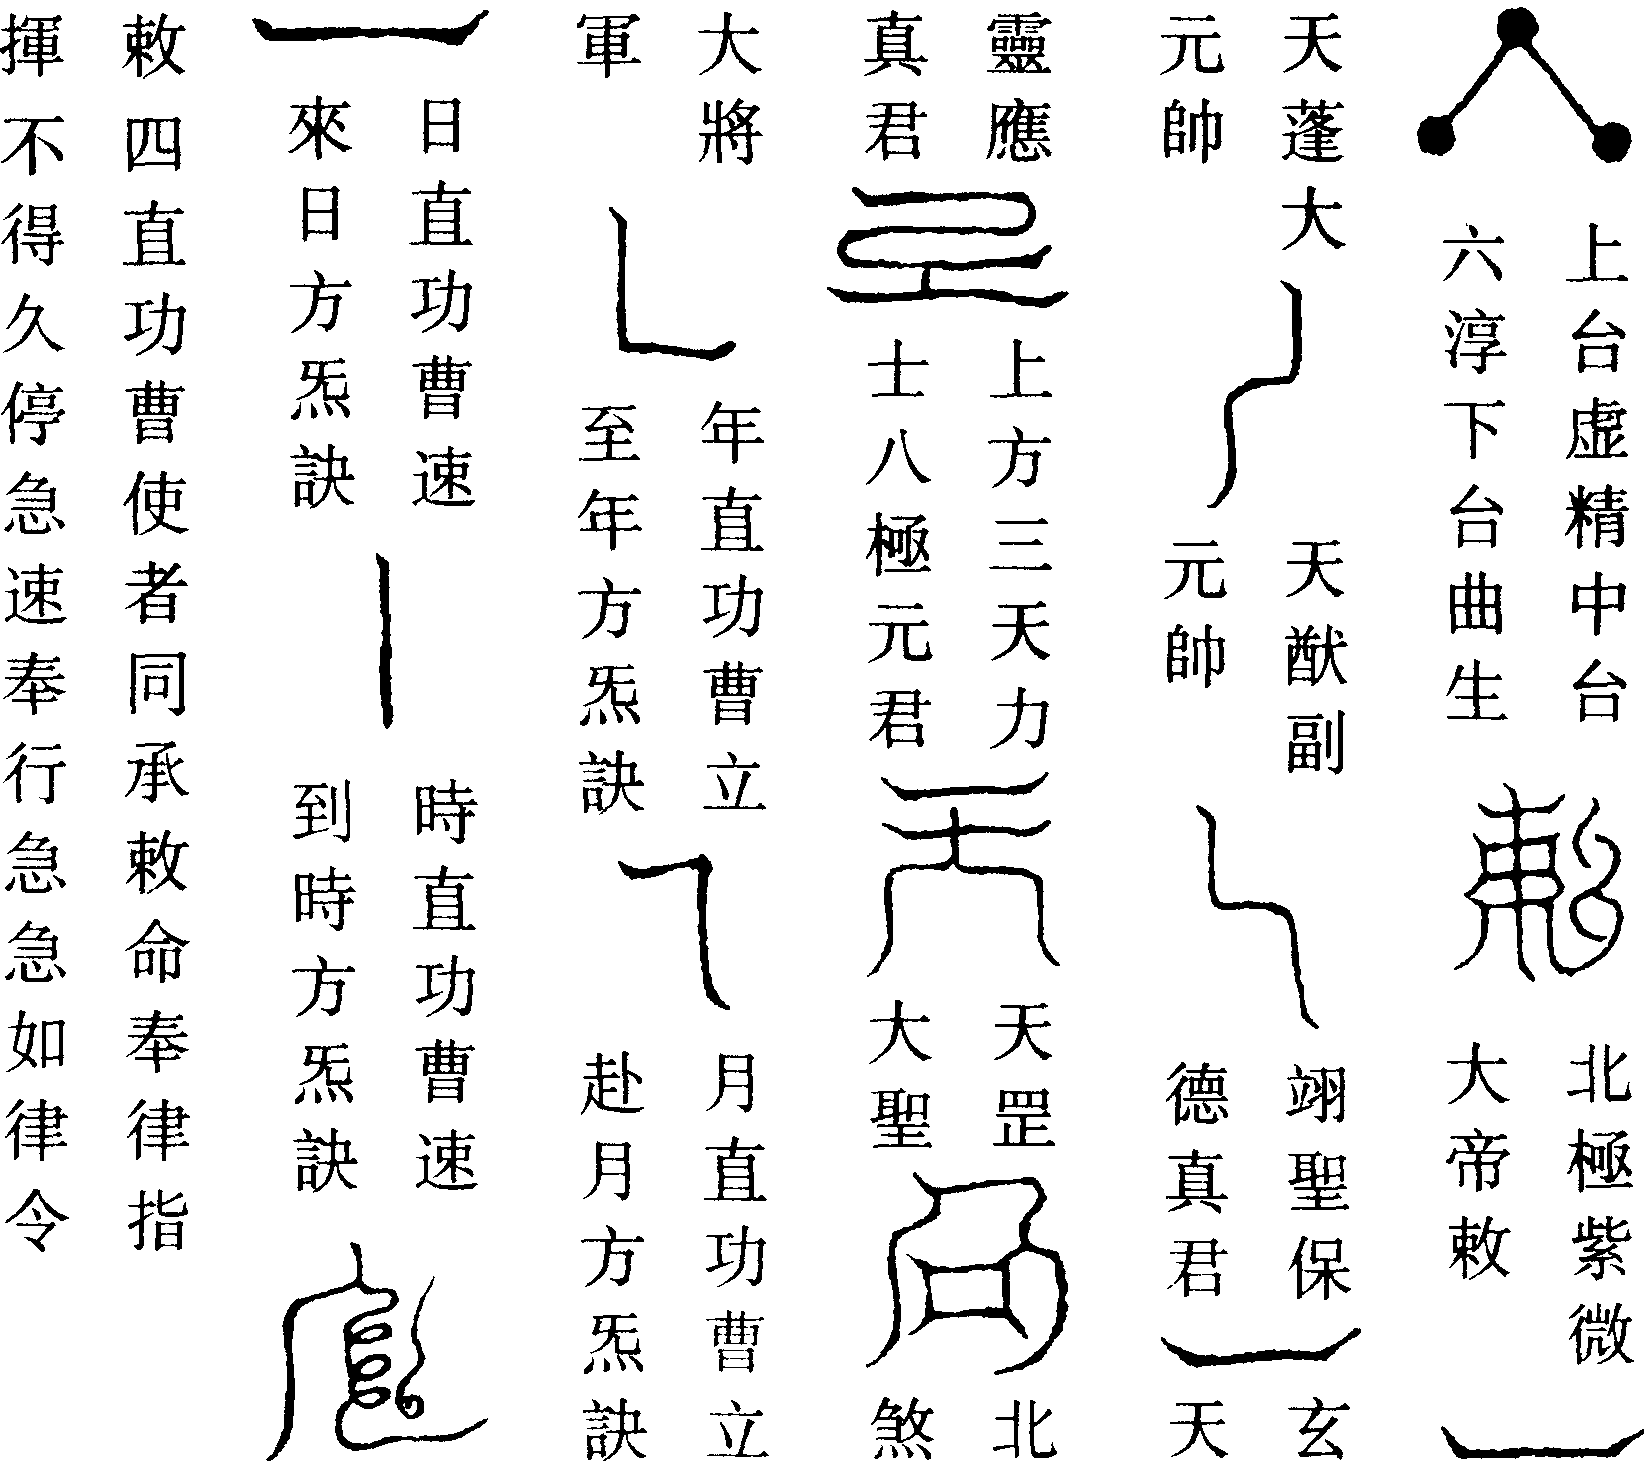 上台虛精中台
六淳下台曲生
北極紫微
大帝敕
天蓬大
元帥
天猷副
元帥
翊聖保
德真君
玄
天
靈應
真君
上方三天力
士八極元君
天罡
大聖
北
煞
大將
軍
年直功曹立
至年方炁訣
月直功曹立
赴月方炁訣
日直功曹速
來日方炁訣
時直功曹速
到時方炁訣
敕四直功曹使者同承敕命奉律指
揮不得久停急速奉行急急如律令